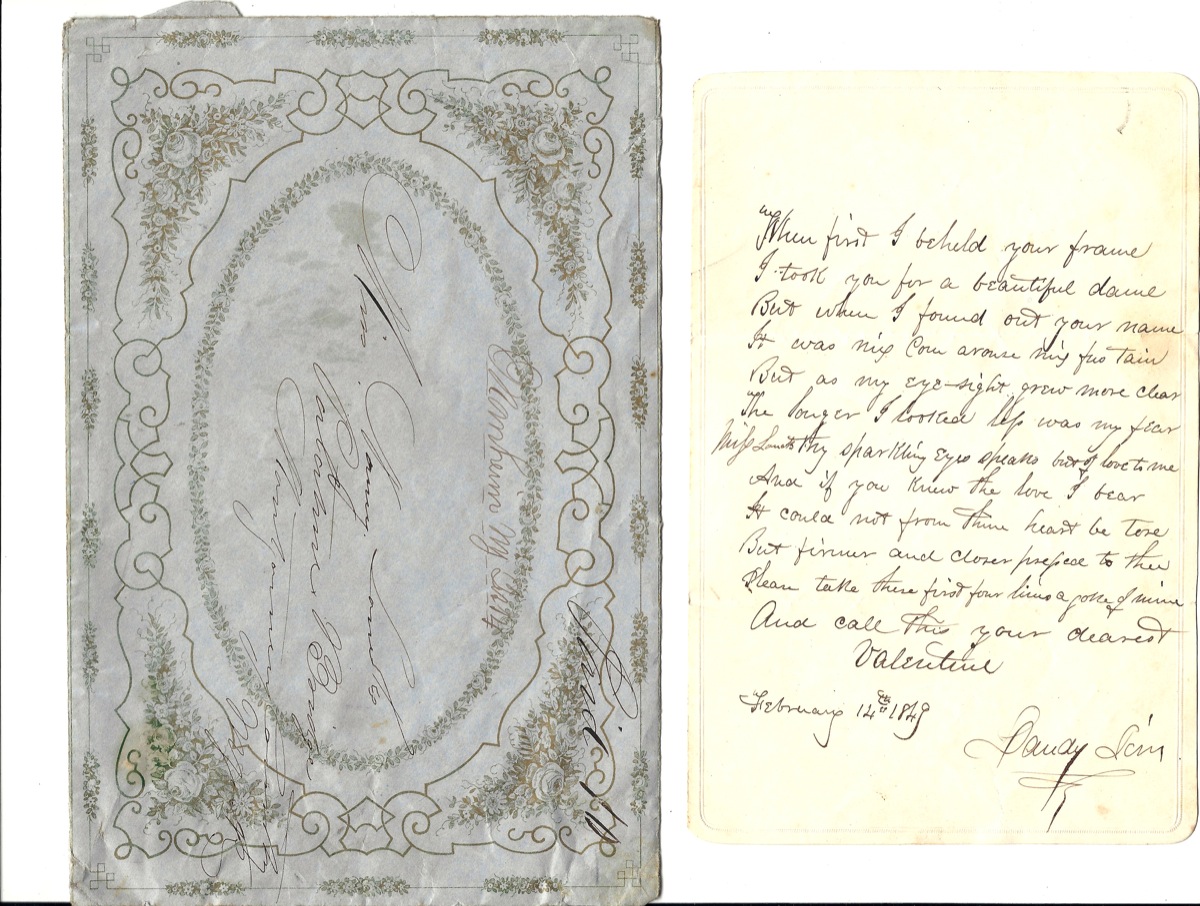 Miss Nancy
Montgomery Co
N.Y.
Paid
Feb 14
"When first I beheld your frame
I took you for a beautiful dame
But when I found out your name
It was nix Com arouse nix fus tain
But as my eye-sight grew more clear
The longer I looked less was my fear
Miss thy sparkling Eyes speaks but of love to me
And if you knew the love I bear
It could not from thine heart be tore
But firmer and closer pressed to thee
Please take these first four lines a joke of mine
And call this your dearest
Valentine
February 14th 1849
Dandy Jim